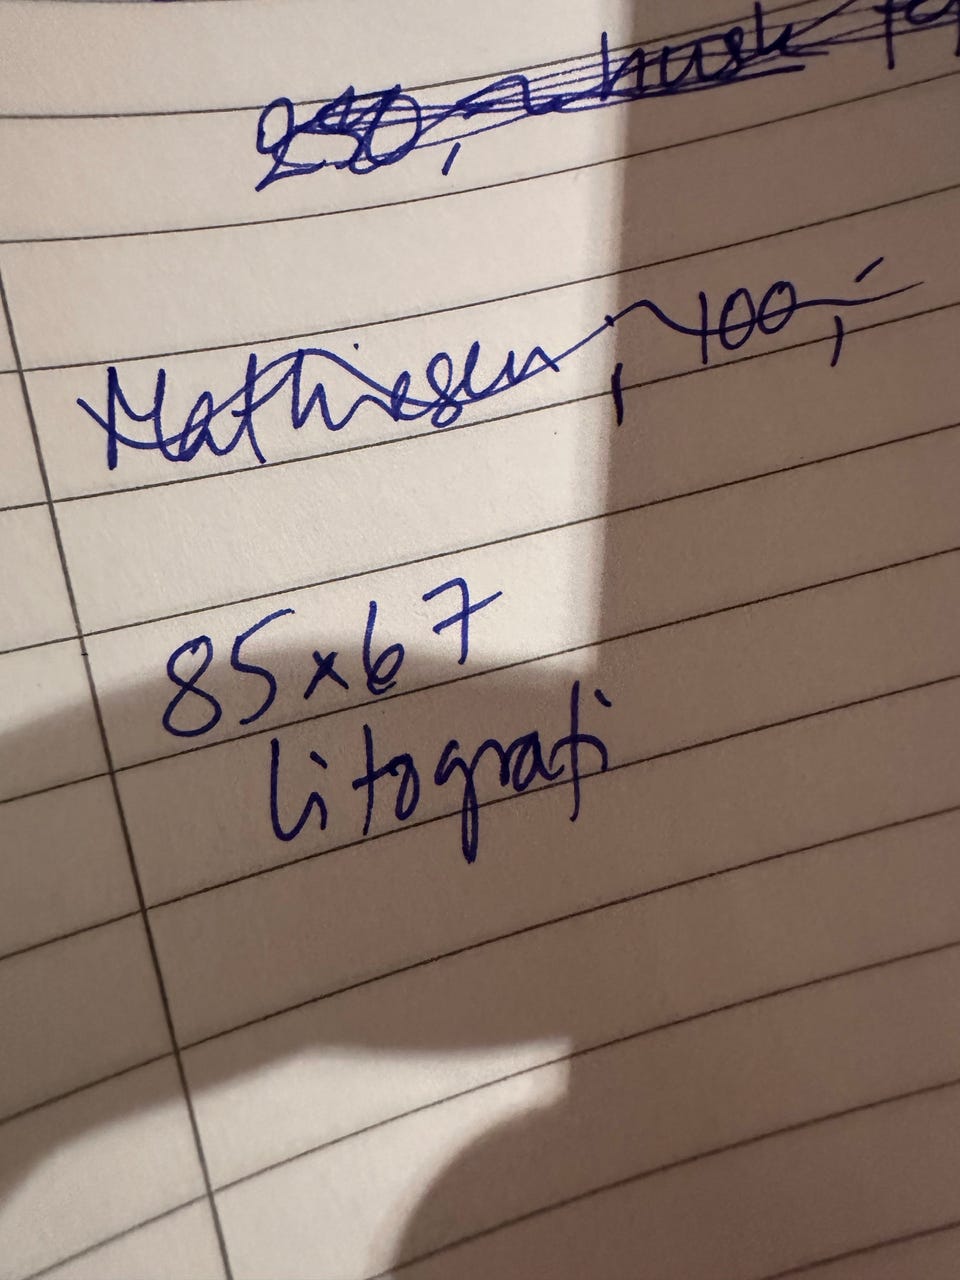 250, husk
Mathiesen, 400,-
85x67
litografi